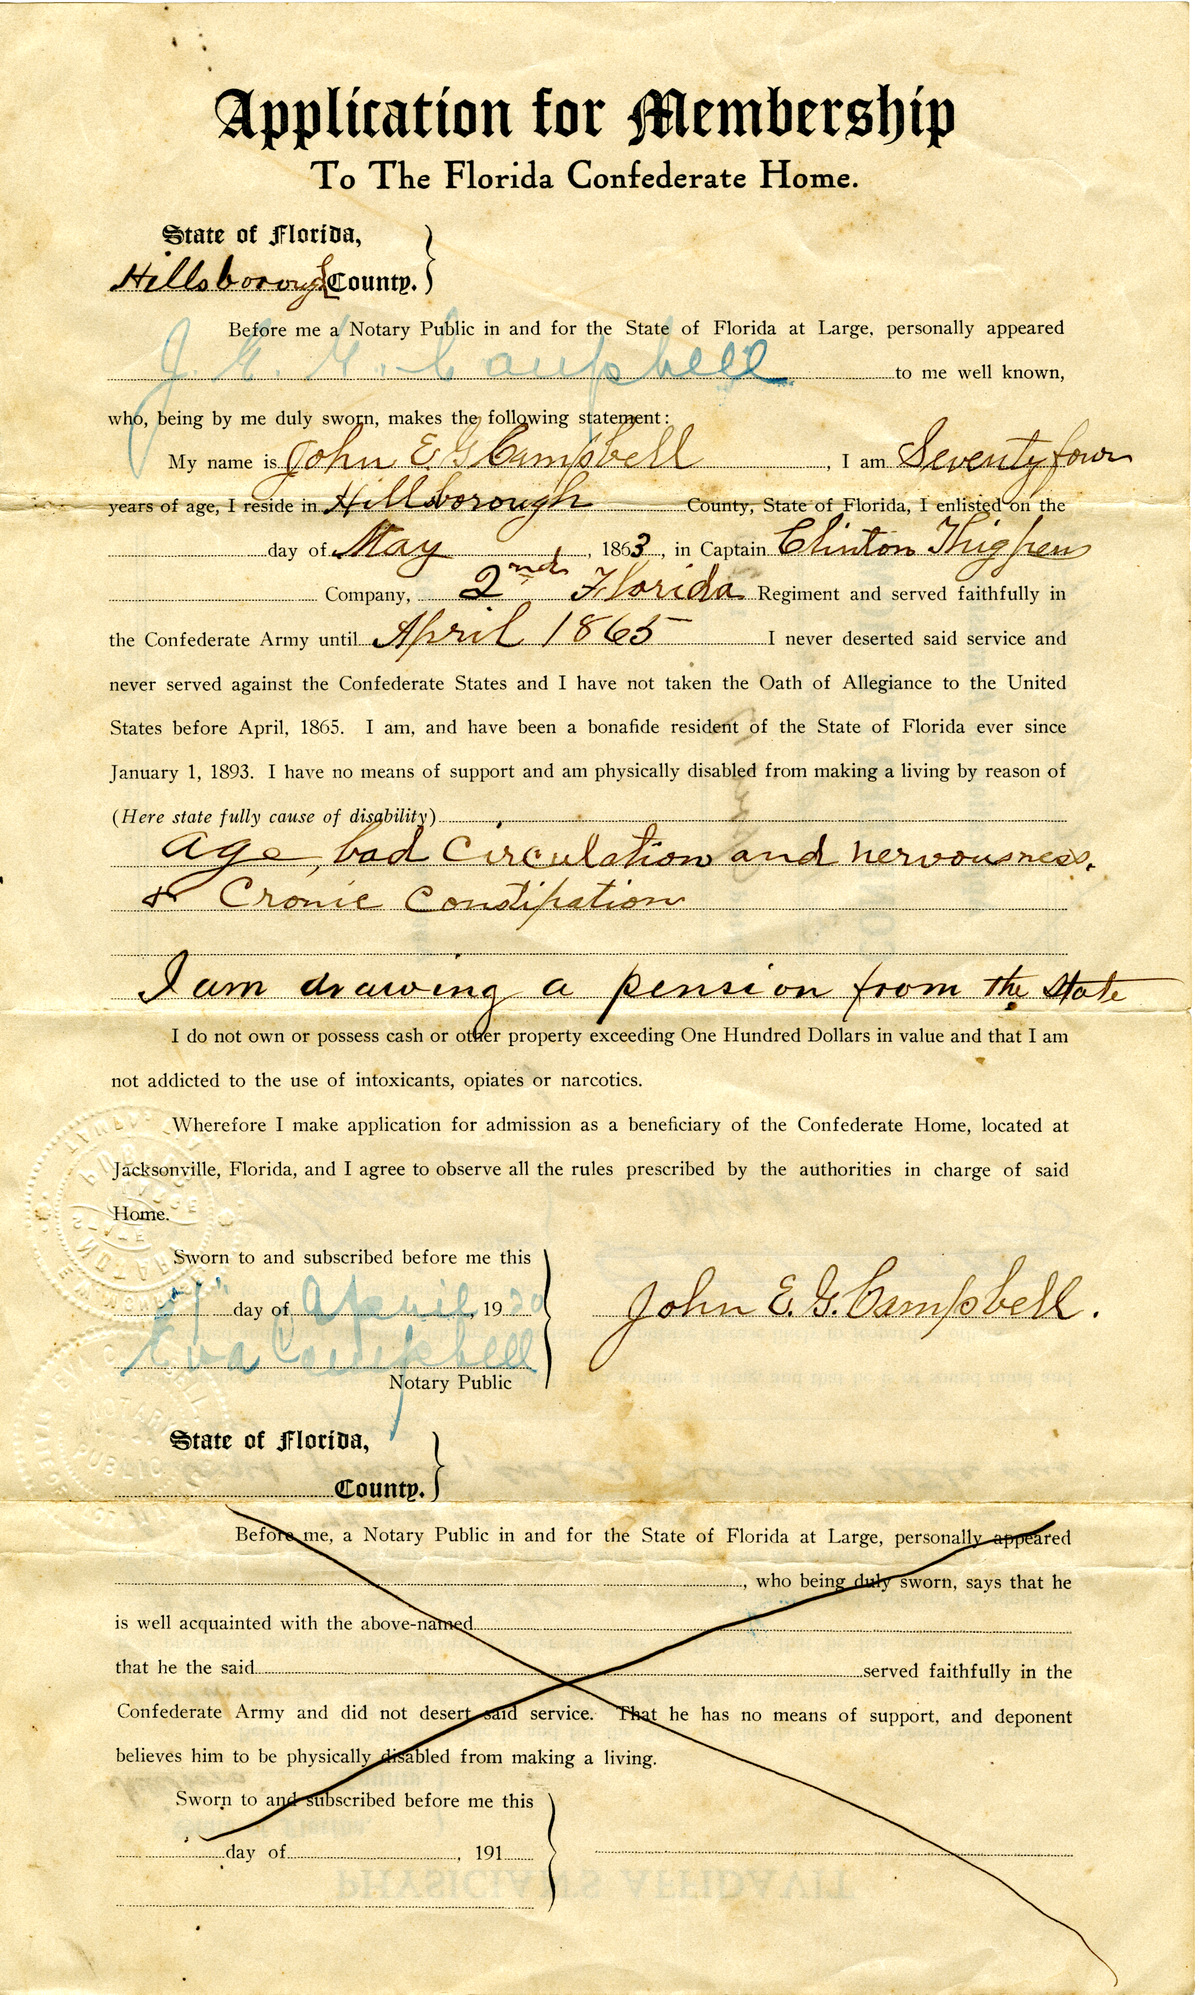 Application for Membership
To The Florida Confederate Home.
State of Florida,
Hillsborough County.
Before me a Notary Public in and for the State of Florida at Large, personally appeared
J. E. G. Campbell to me well known,
who, being by me duly sworn, makes the following statement:
My name is John E. G Campbell, I am Seventy four
years of age, I reside in Hillsborough County, State of Florida, I enlisted on the
day of May, 1863, in Captain Clinton Thigpens
Company, 2nd Florida Regiment and served faithfully in
the Confederate Army until April 1865 I never deserted said service and
never served against the Confederate States and I have not taken the Oath of Allegiance to the United
States before April, 1865. I am, and have been a bonafide resident of the State of Florida ever since
January 1, 1893. I have no means of support and am physically disabled from making a living by reason of
(Here state fully cause of disability)
age, bad circulation and nervousness.
& Cronic Constipation
I am drawing a pension from the State
I do not own or possess cash or other property exceeding One Hundred Dollars in value and that I am
not addicted to the use of intoxicants, opiates or narcotics.
Wherefore I make application for admission as a beneficiary of the Confederate Home, located at
Jacksonville, Florida, and I agree to observe all the rules prescribed by the authorities in charge of said
Home.
Sworn to and subscribed before me this
day of April, 1920
John E. G. Campbell.
Eva Campbell
Notary Public
State of Florida,
County.
Before me, a Notary Public in and for the State of Florida at Large, personally appeared
, who being duly sworn, says that he
is well acquainted with the above-named
that he the said served faithfully in the
Confederate Army and did not desert said service. That he has no means of support, and deponent
believes him to be physically disabled from making a living.
Sworn to and subscribed before me this
day of , 191